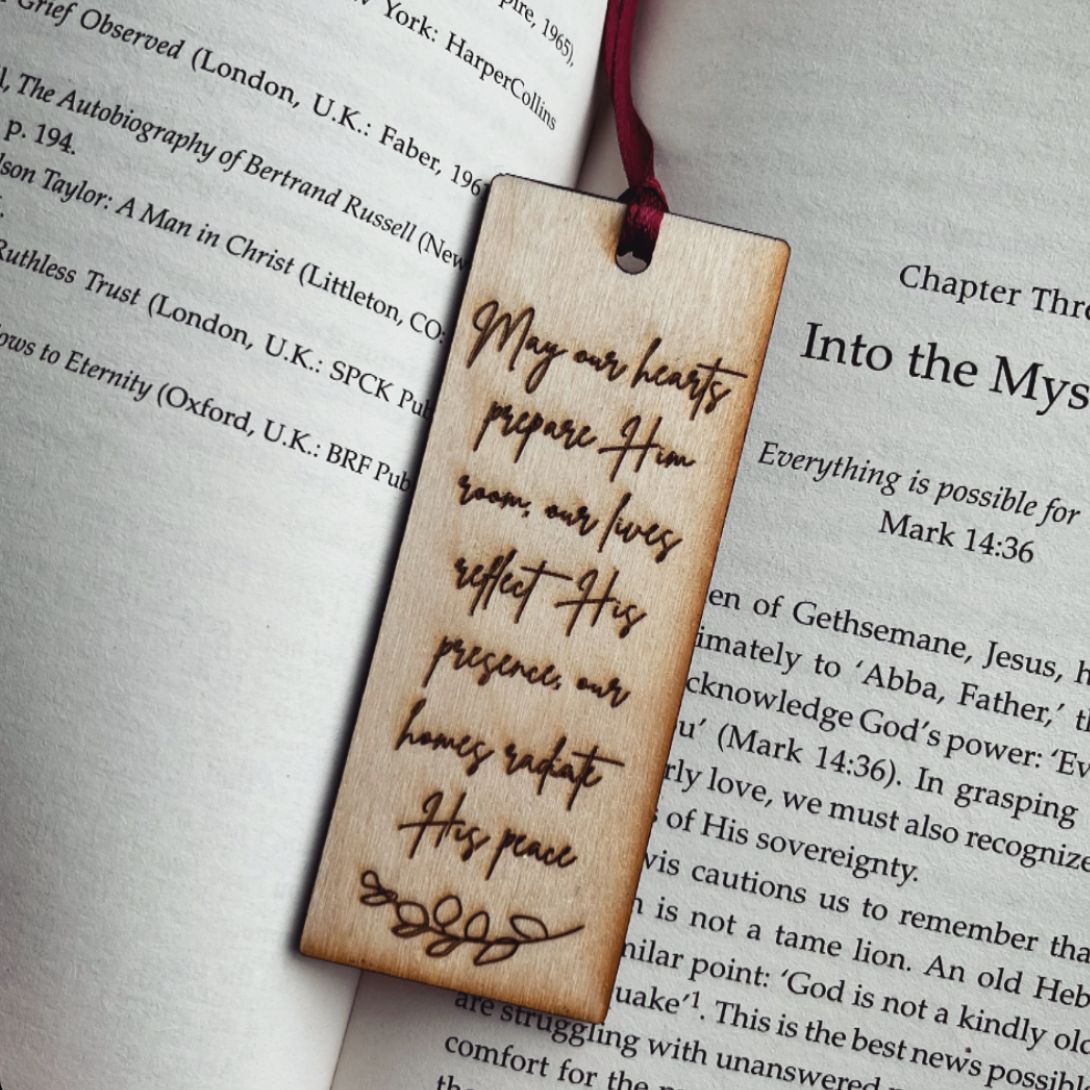 pire, 1965),
York: HarperCollins
Grief Observed (London, U.K.: Faber, 196
The Autobiography of Bertrand Russell (New
p. 194.
lson Taylor: A Man in Christ (Littleton, CO:
Ruthless Trust (London, U.K.: SPCK Pub
ows to Eternity (Oxford, U.K.: BRF Pub
May our hearts
prepare Him
room, our lives
reflect His
presence, our
homes radiate
His peace
Chapter Thr
Into the Mys
Everything is possible for
Mark 14:36
en of Gethsemane, Jesus, h
imately to ‘Abba, Father,’ th
cknowledge God’s power: ‘Ev
u’ (Mark 14:36). In grasping
rly love, we must also recognize
of His sovereignty.
wis cautions us to remember tha
n is not a tame lion. An old Heb
milar point: ‘God is not a kindly old
uake’1. This is the best news possibl
are struggling with unanswered
comfort for the